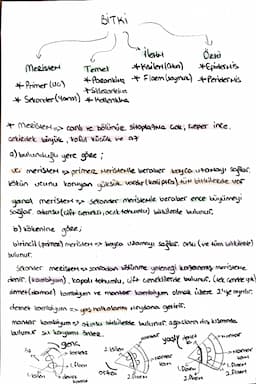 BİTKİ
Meristem
Temel
İletim
Örtü
* Primer (Uç)
* Sekonder (Yanal)
* Parankima
* Sklerankima
* Kollenkima
* Ksilem (Odun)
* Floem (Soymuk)
* Epidermis
* Peridermis
* Meristem => canlı ve bölünür. sitoplazma çok, çeper ince,
çekirdek büyük, koful küçük ve az
a) bulunduğu yere göre;
uç meristem => primer meristemle beraber boyca uzamayı sağlar.
kökün ucunu koruyan yüksük vardır (kaliptra) tüm bitkilerde var
yanal meristem => sekonder meristemle beraber ence büyümeyi
sağlar. odunsu (çift çenekli, açık tohumlu) bitkilerde bulunur.
b) kökenine göre;
birincil (primer) meristem => boyca uzamayı sağlar. otsu (ve tüm bitkilerde)
bulunur.
sekonder meristem => sonradan bölünme yeteneği kazanmış meristeme
denir. (kambiyum), kapalı tohumlu, çift çeneklilerde bulunur. (tek çenekte yok)
demet (damar) kambiyum ve mantar kambiyum olmak üzere 2'ye ayrılır.
demet kambiyum => yaş halkalarını meydana getirir.
mantar kambiyum => odunsu bitkilerde bulunur. ağaçların dış kısmında
bulunur su kaybını önler.
genç
yaşlı